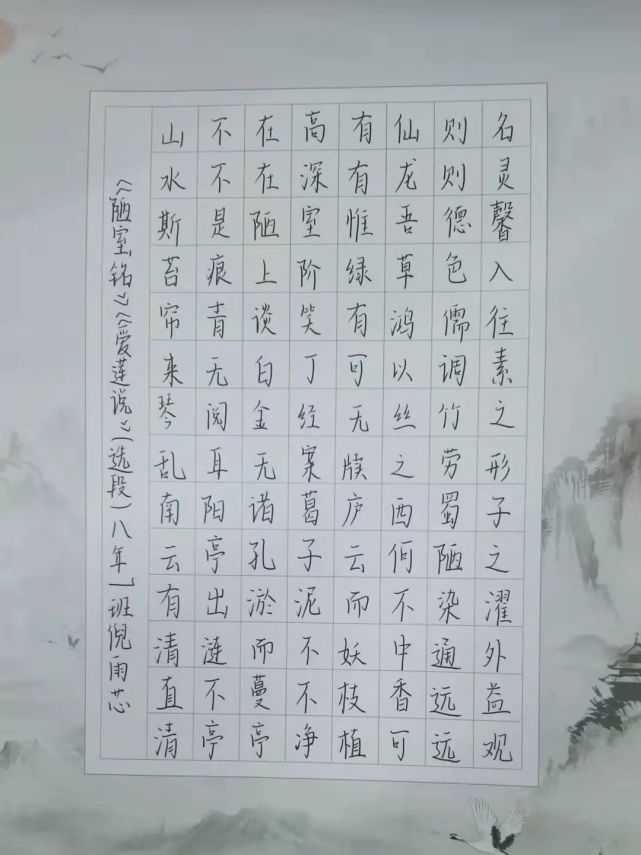 山不在高有仙则名
水不在深有龙则灵
斯是陋室惟吾德馨
苔痕上阶绿草色入
帘青谈笑有鸿儒往
来无白丁可以调素
琴阅金经无丝竹之
乱耳无案牍之劳形
南阳诸葛庐西蜀子
云亭孔子云何陋之
有出淤泥而不染濯
清涟而不妖中通外
直不蔓不枝香远益
清亭亭净植可远观
《陋室铭》《爱莲说》（选段）八年1班倪雨芯